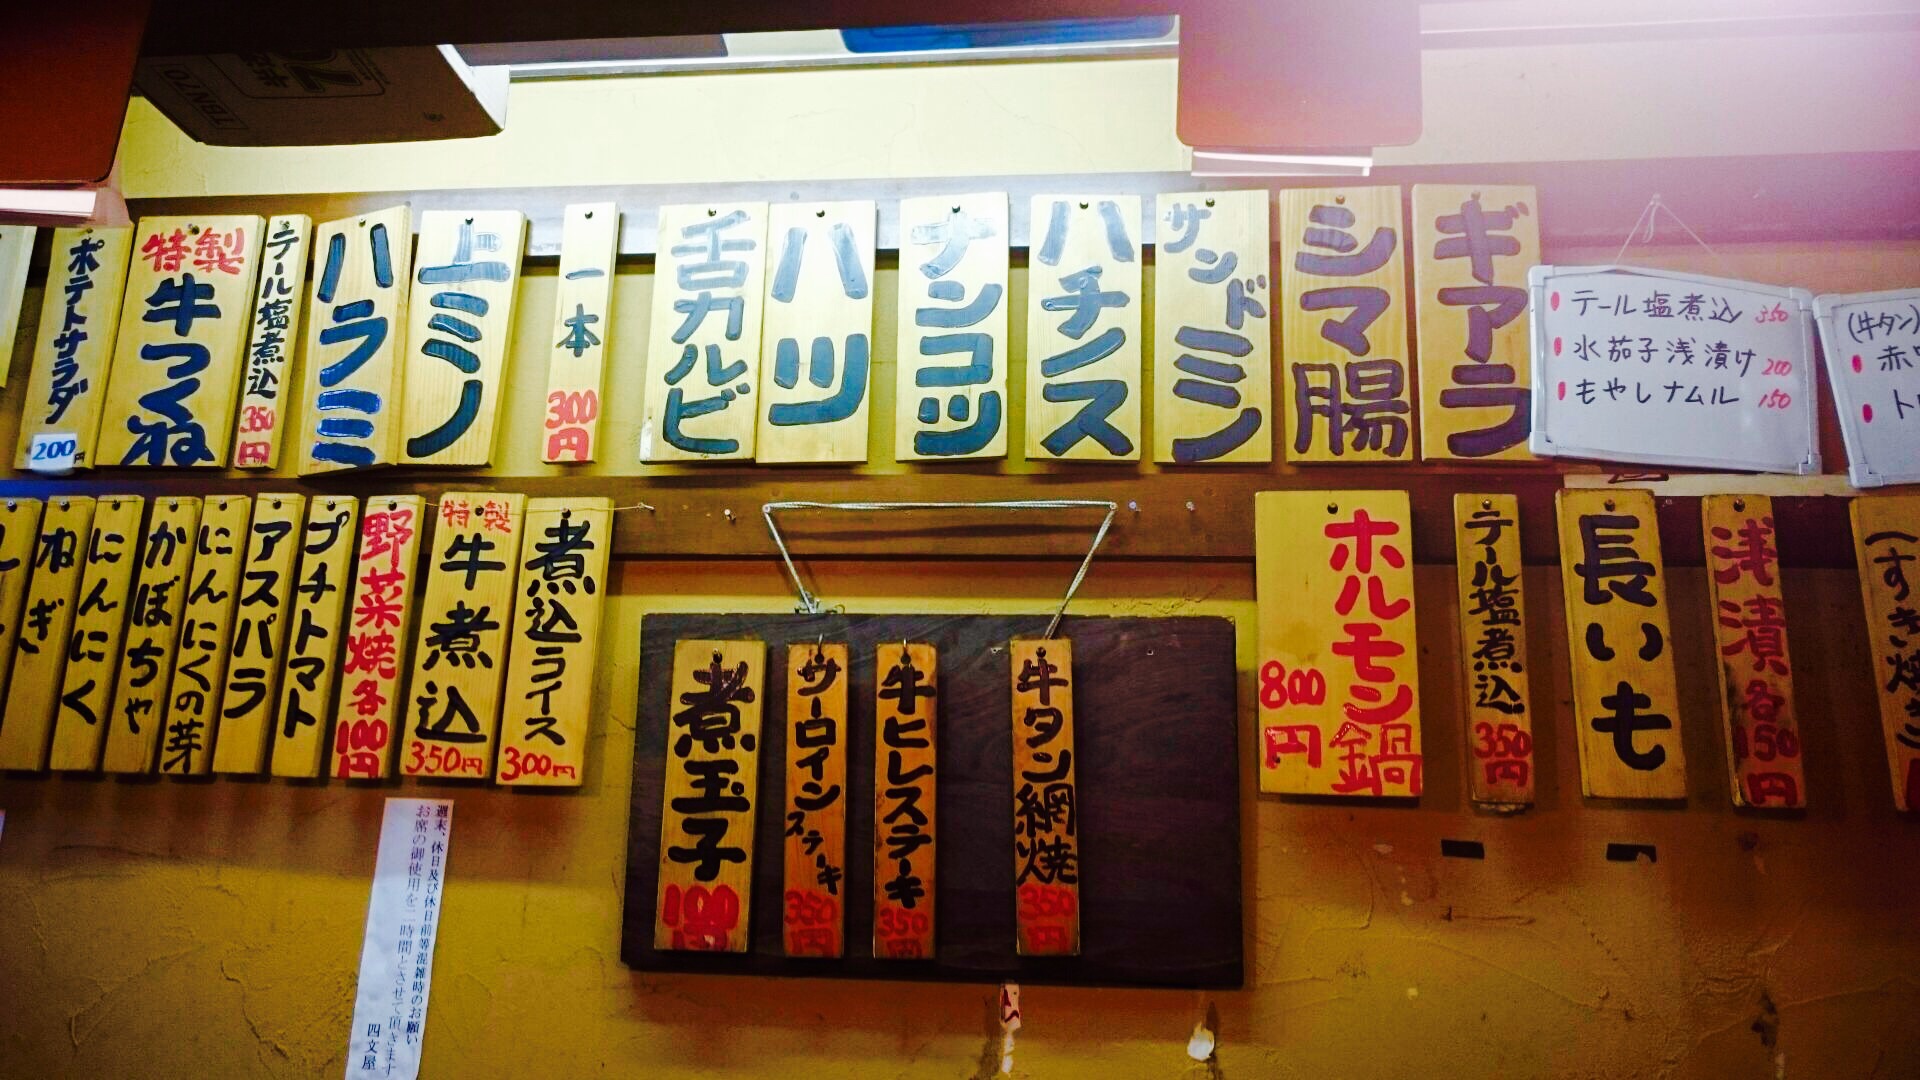 ポテトサラダ
200円
特製
牛つくね
テール塩煮込
350
円
ハラミ
上ミノ
一本
300
円
舌カルビ
ハツ
ナンコツ
ハチノス
サンドミノ
シマ腸
ギアラ
テール塩煮込 350
水茄子浅漬け 200
もやしナムル 150
(牛タン)
ねぎ
にんにく
かぼちゃ
にんにくの芽
アスパラ
プチトマト
野菜焼各
100
円
特製
牛煮込
350円
煮込ライス
300円
煮玉子
100
円
サーロインステーキ
350
円
牛ヒレステーキ
350
円
牛タン網焼
350
円
ホルモン鍋
800
円
テール塩煮込
350
円
長いも
浅漬各
150
円
週末、休日及び休日前等混雑時のお願い
お席の御使用を二時間とさせて頂きます
四文屋